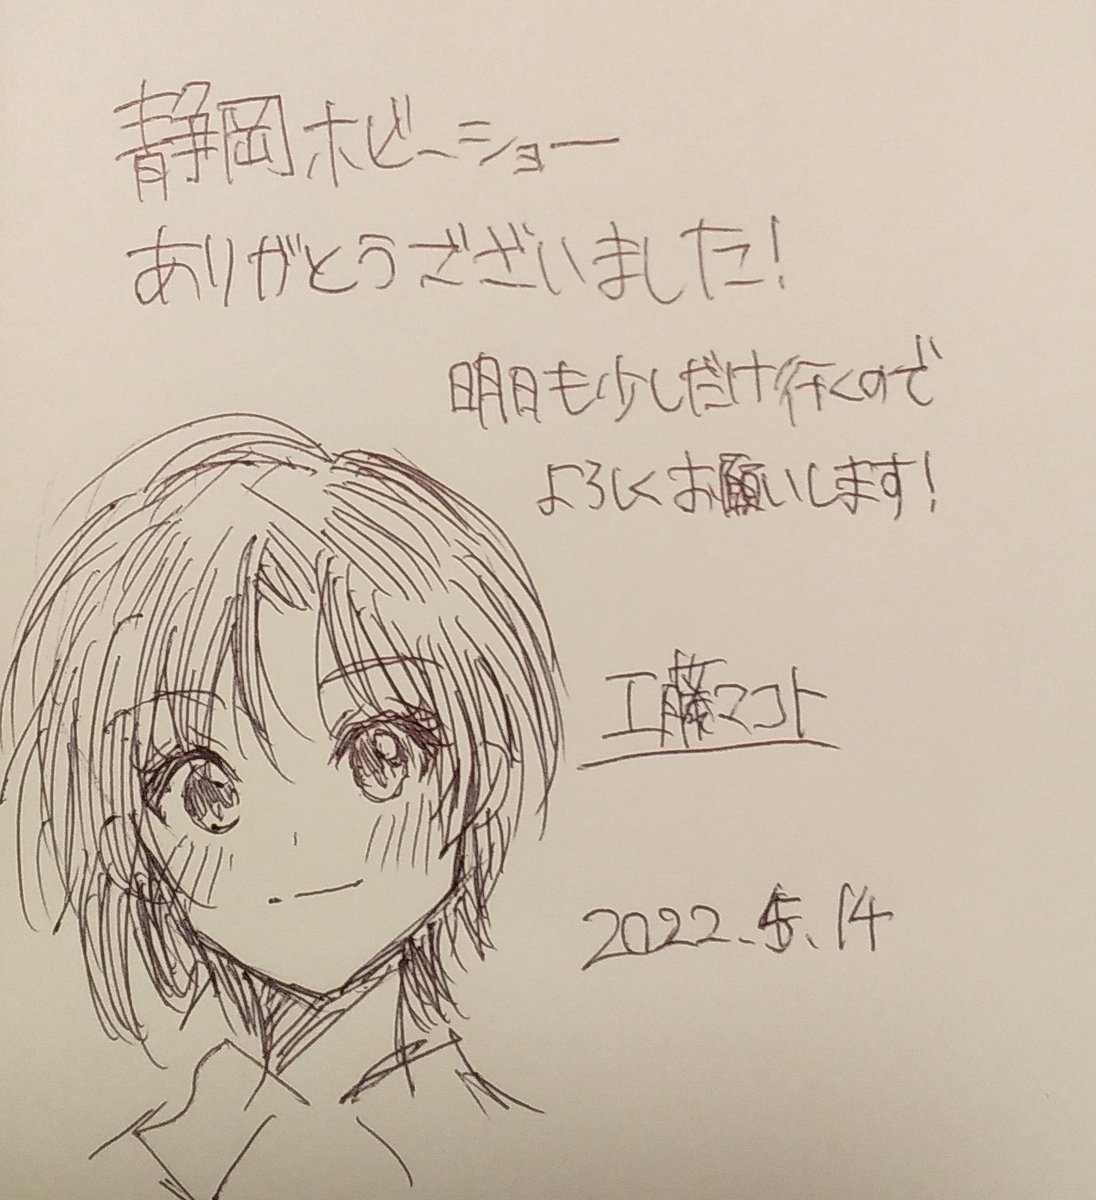 静岡ホビーショー
ありがとうございました!
明日も少しだけ行くので
よろしくお願いします!
工藤マコト
2022.5.14